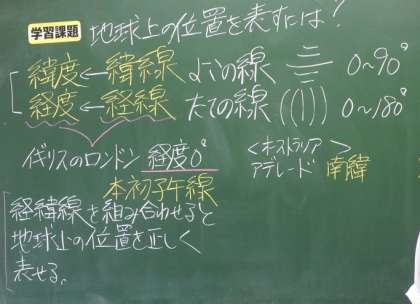 学習課題 地球上の位置を表すには?
緯度←緯線 よこの線 0~90°
経度←経線 たての線 0~180°
イギリスのロンドン 経度0°
本初子午線
<オーストラリア>
アデレード 南緯
経緯線を組み合わせると
地球上の位置を正しく
表せる。